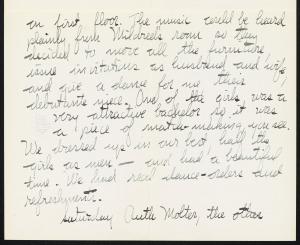 on first floor. The music could be heard
plainly from Mildred's room so they
decided to move all the furniture
issue invitations as husband and wife
and give a dance for me their
debutante niece. One of the girls was a
very attractive bachelor so it was
a piece of match-making you see.
We dressed up in our best half the
girls as men — and had a beautiful
time. We had real dance-orders and
refreshments.
Saturday Ruth Molter, the other